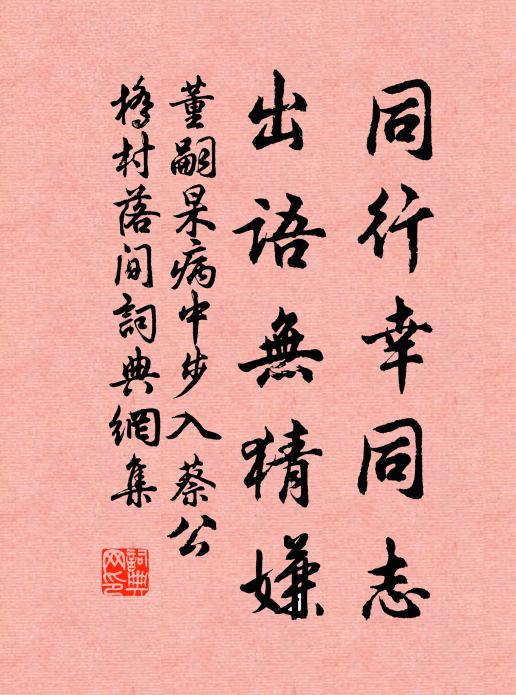 同行幸同志
出語無猜嫌
董嗣杲病中步入蔡公
橋村落間詞典網集
詞典网印